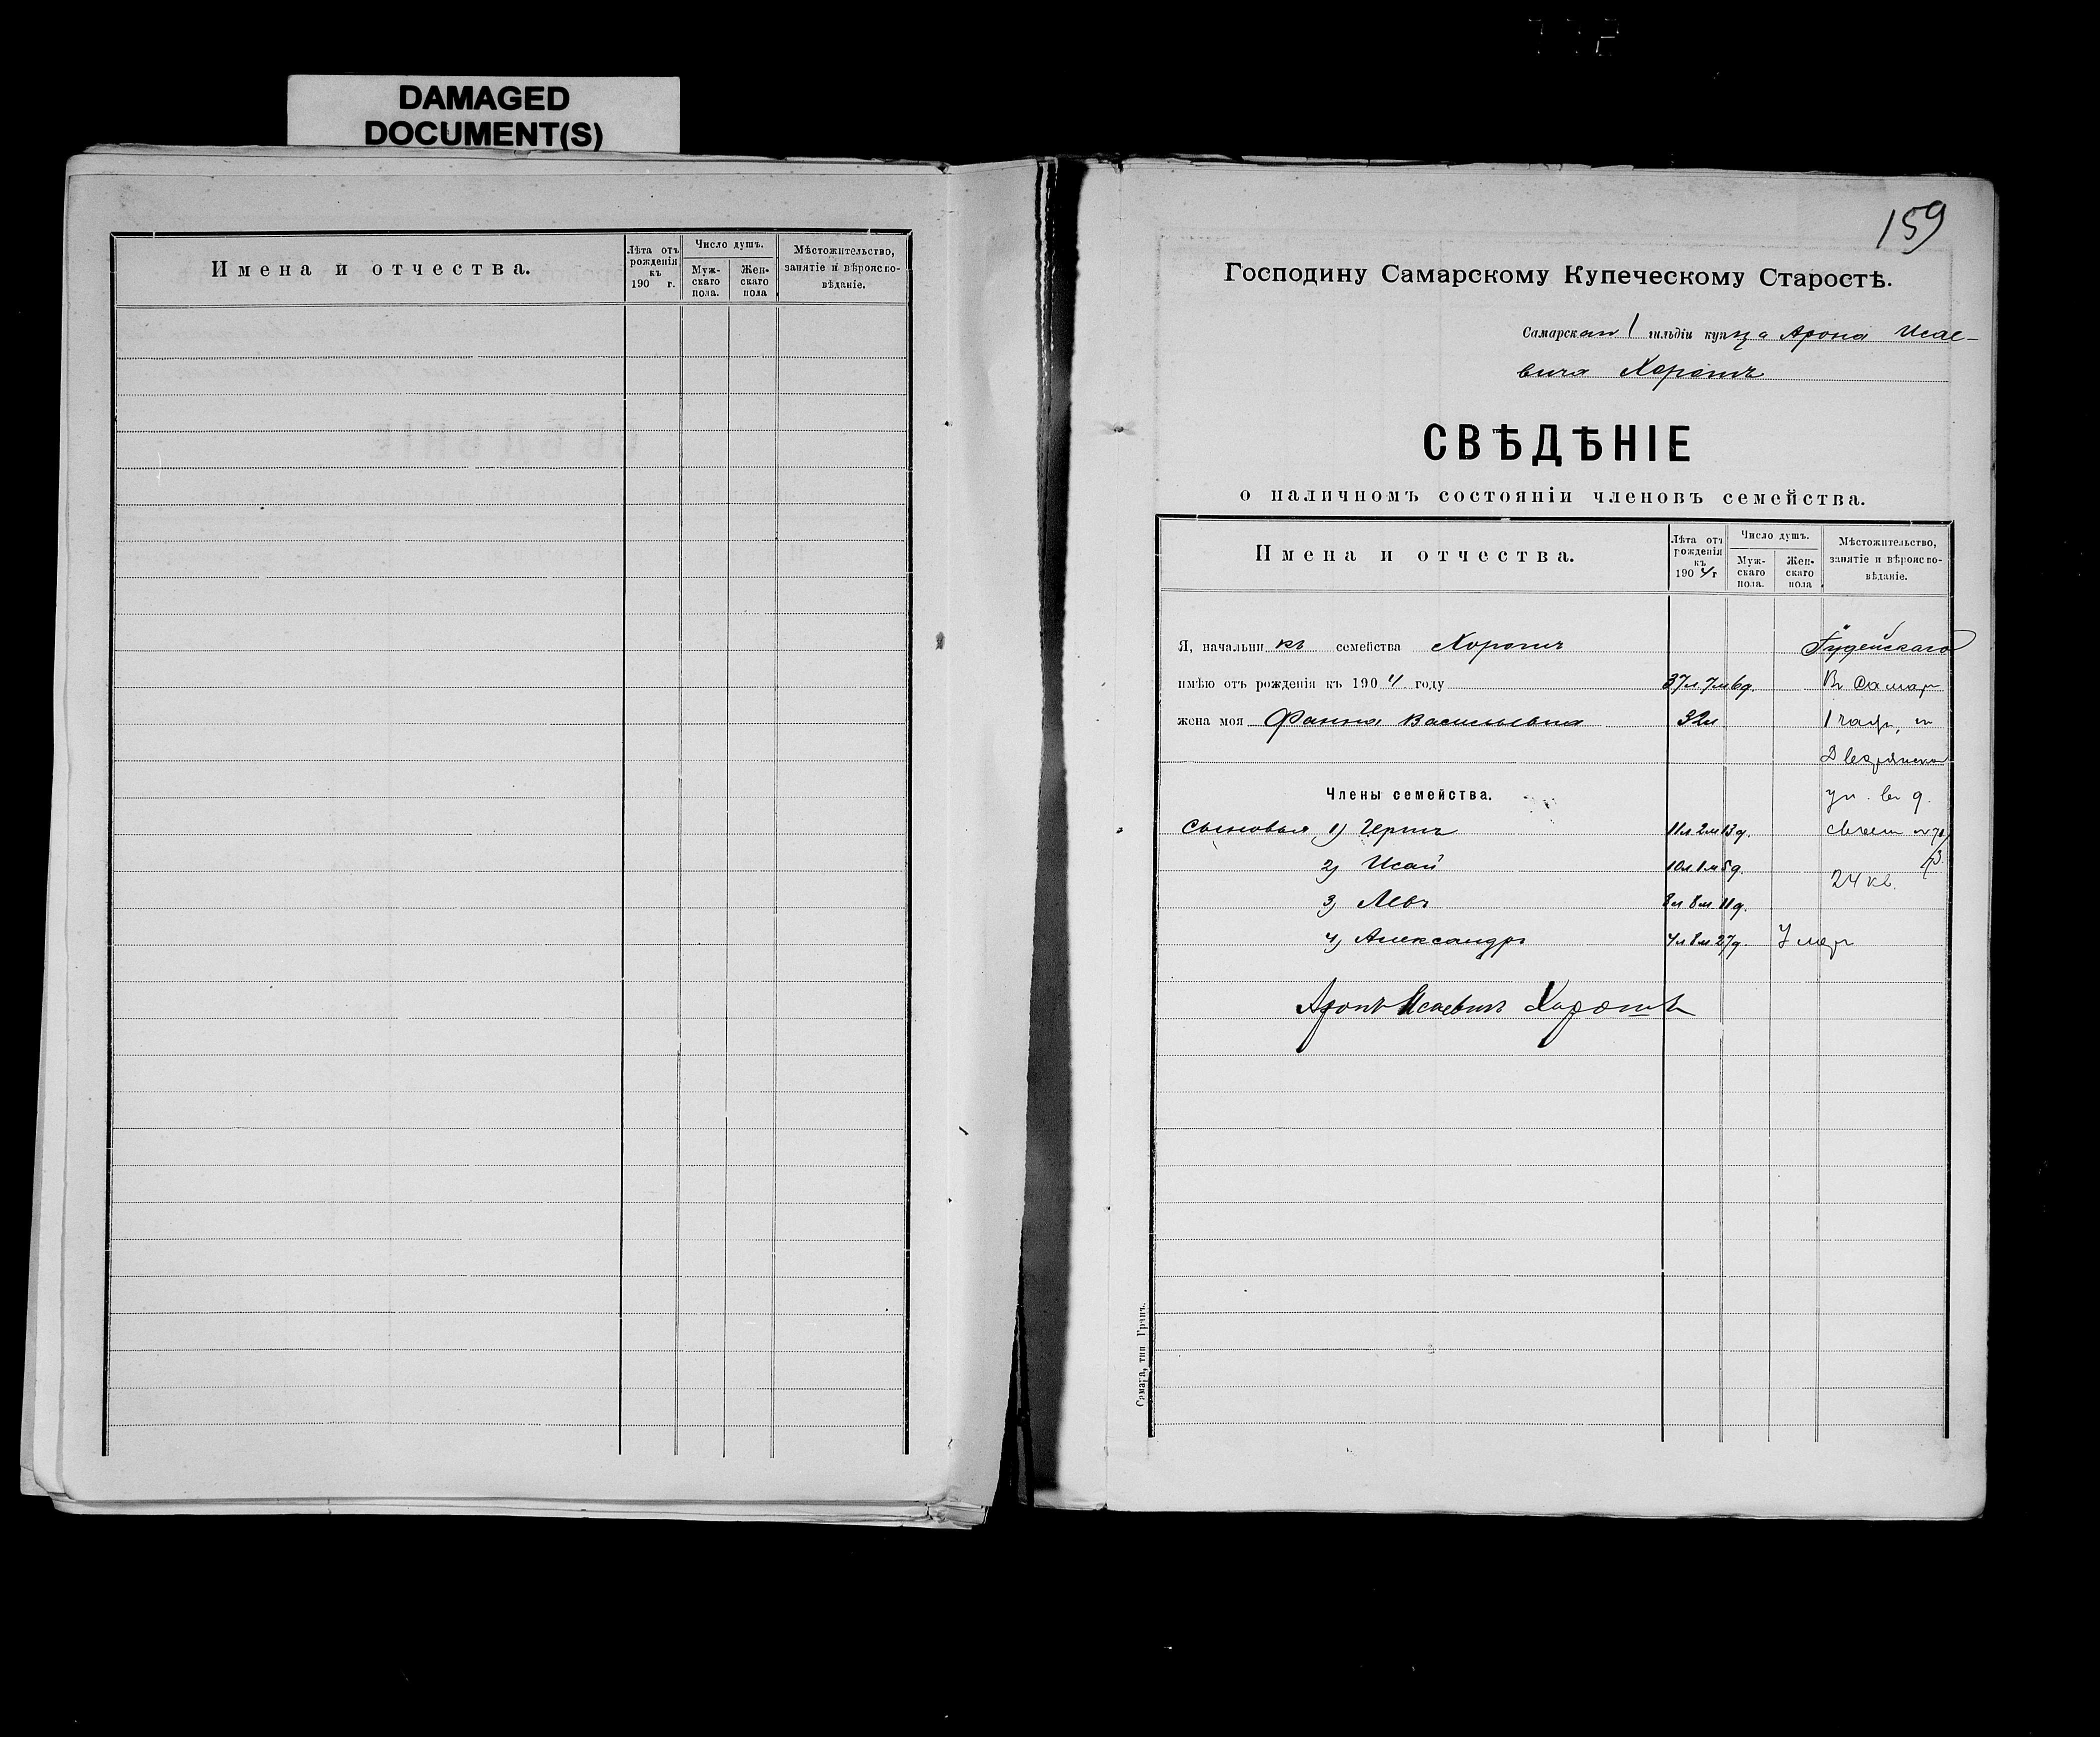 DAMAGED
DOCUMENT(S)
Имена и отчества.
Лѣта отъ рожденія къ 190 г.
Число душъ.
Мужскаго пола.
Женскаго пола
Мѣстожительство, занятіе и вѣроисповѣданіе.
159
Господину Самарскому Купеческому Старостѣ.
Самарскаго 1 гильдіи купца Арона Исае-
вича Хоротъ
СВѢДѢНІЕ
о наличномъ состояніи членовъ семейства.
Имена и отчества.
Лѣта отъ рожденія къ 1904 г
Число душъ.
Мужскаго пола.
Женскаго пола
Мѣстожительство, занятіе и вѣроисповѣданіе.
Я, начальникъ семейства Іудейскаго
имѣю отъ рожденія къ 1904 году 37л. 7м 6д. Въ Самар
жена моя Фанна Васильевна 32л 1 част,
Дворянской
Члены семейства. ул. въ д.
Сыновья 1) Герцъ 11л 2м 13д. своем
2) Исай 10л 1м 5д.
24 кв.
3) Левъ 8л 8м 11д.
4) Александръ 4л 8м 27д. Умер
Аронъ Исаевичъ
Самара, тип Гранъ.